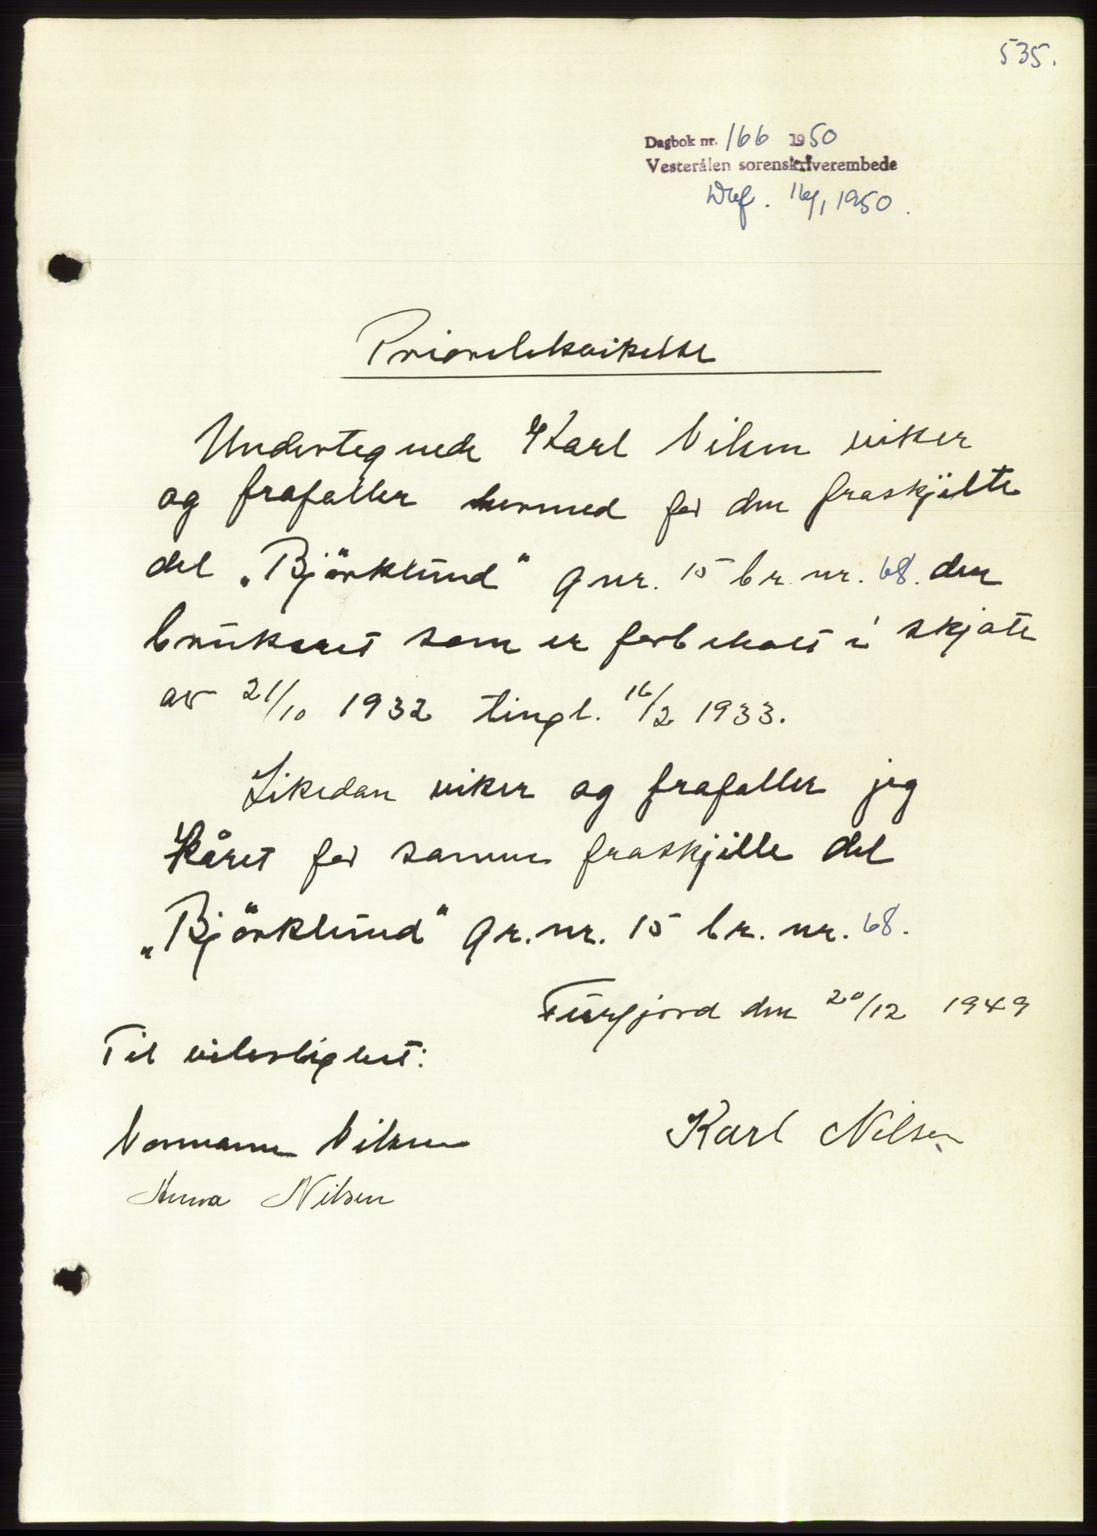 535.
Dagbok nr. 166 1950
Vesterålen sorenskriverembede
16/1 1950.
Prioritetsvikelse
Undertegnede Karl Nilsen viker
og frafaller hermed for den fraskjilte
del „Björklund" gnr. 15 br. nr. 68. den
bruksret som er forbeholt i skjöte
av 21/10 1932 tingl. 16/2 1933.
Likedan viker og frafaller jeg
Kåret for samme fraskjille del
„Björklund" gr. nr. 15 br. nr. 68.
den 20/12 1949
Til vitterlighet:
Normann Nilsen
Karl Nilsen
Anna Nilsen